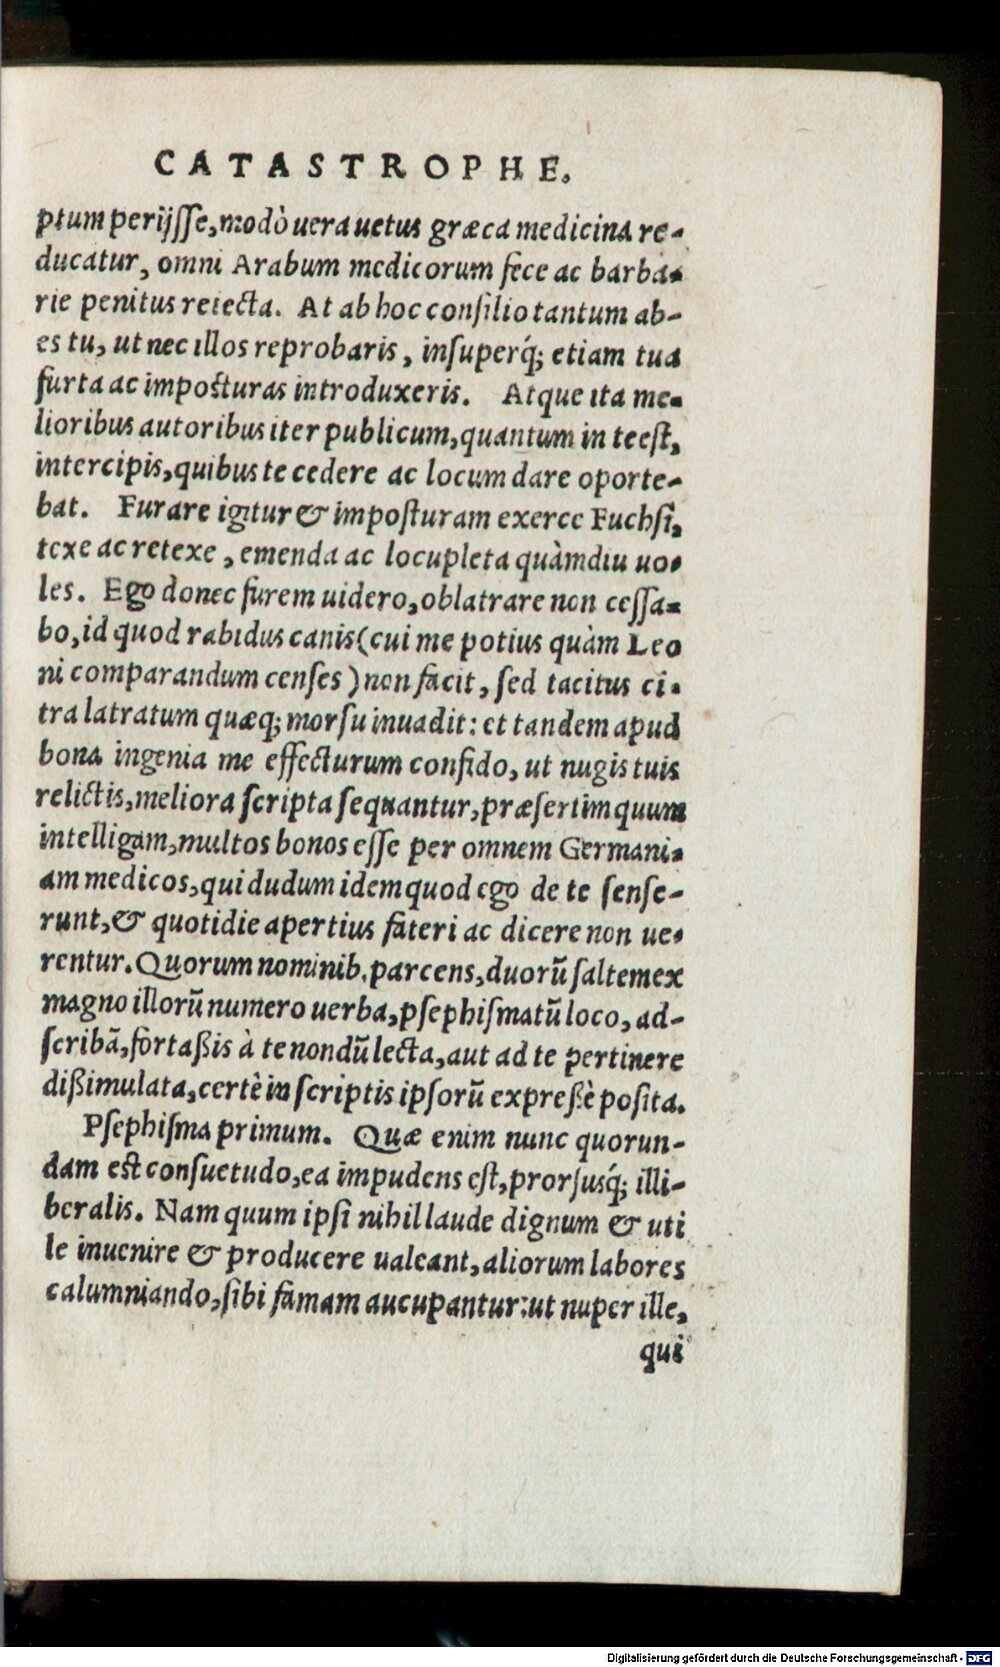 CATASTROPHE.
ptum perijsse, modò uera uetus græca medicina re-
ducatur, omni Arabum medicorum fece ac barba-
rie penitus reiecta. At ab hoc consilio tantum ab-
es tu, ut nec illos reprobaris, insuperq́; etiam tua
furta ac imposturas introduxeris. Atque ita me-
lioribus autoribus iter publicum, quantum in te est,
intercipis, quibus te cedere ac locum dare oporte-
bat. Furare igitur & imposturam exerce Fuchsi,
texe ac retexe, emenda ac locupleta quàmdiu uo-
les. Ego donec furem uidero, oblatrare non cessa-
bo, id quod rabidus canis (cui me potius quàm Leo
ni comparandum censes) non facit, sed tacitus ci-
tra latratum quæq; morsu inuadit: et tandem apud
bona ingenia me effecturum confido, ut nugis tuis
relictis, meliora scripta sequantur, præsertim quum
intelligam, multos bonos esse per omnem Germani-
am medicos, qui dudum idem quod ego de te sense-
runt, & quotidie apertius fateri ac dicere non ue-
rentur. Quorum nominib. parcens, duorũ saltem ex
magno illorũ numero uerba, psephismatũ loco, ad-
scribã, fortaßis à te nondũ lecta, aut ad te pertinere
dißimulata, certè in scriptis ipsorũ expreßè posita.
Psephisma primum. Quæ enim nunc quorun-
dam est consuetudo, ea impudens est, prorsusq́; illi-
beralis. Nam quum ipsi nihil laude dignum & uti
le inuenire & producere ualeant, aliorum labores
calumniando, sibi famam aucupantur: ut nuper ille,
qui
Digitalisierung gefördert durch die Deutsche Forschungsgemeinschaft - DFG